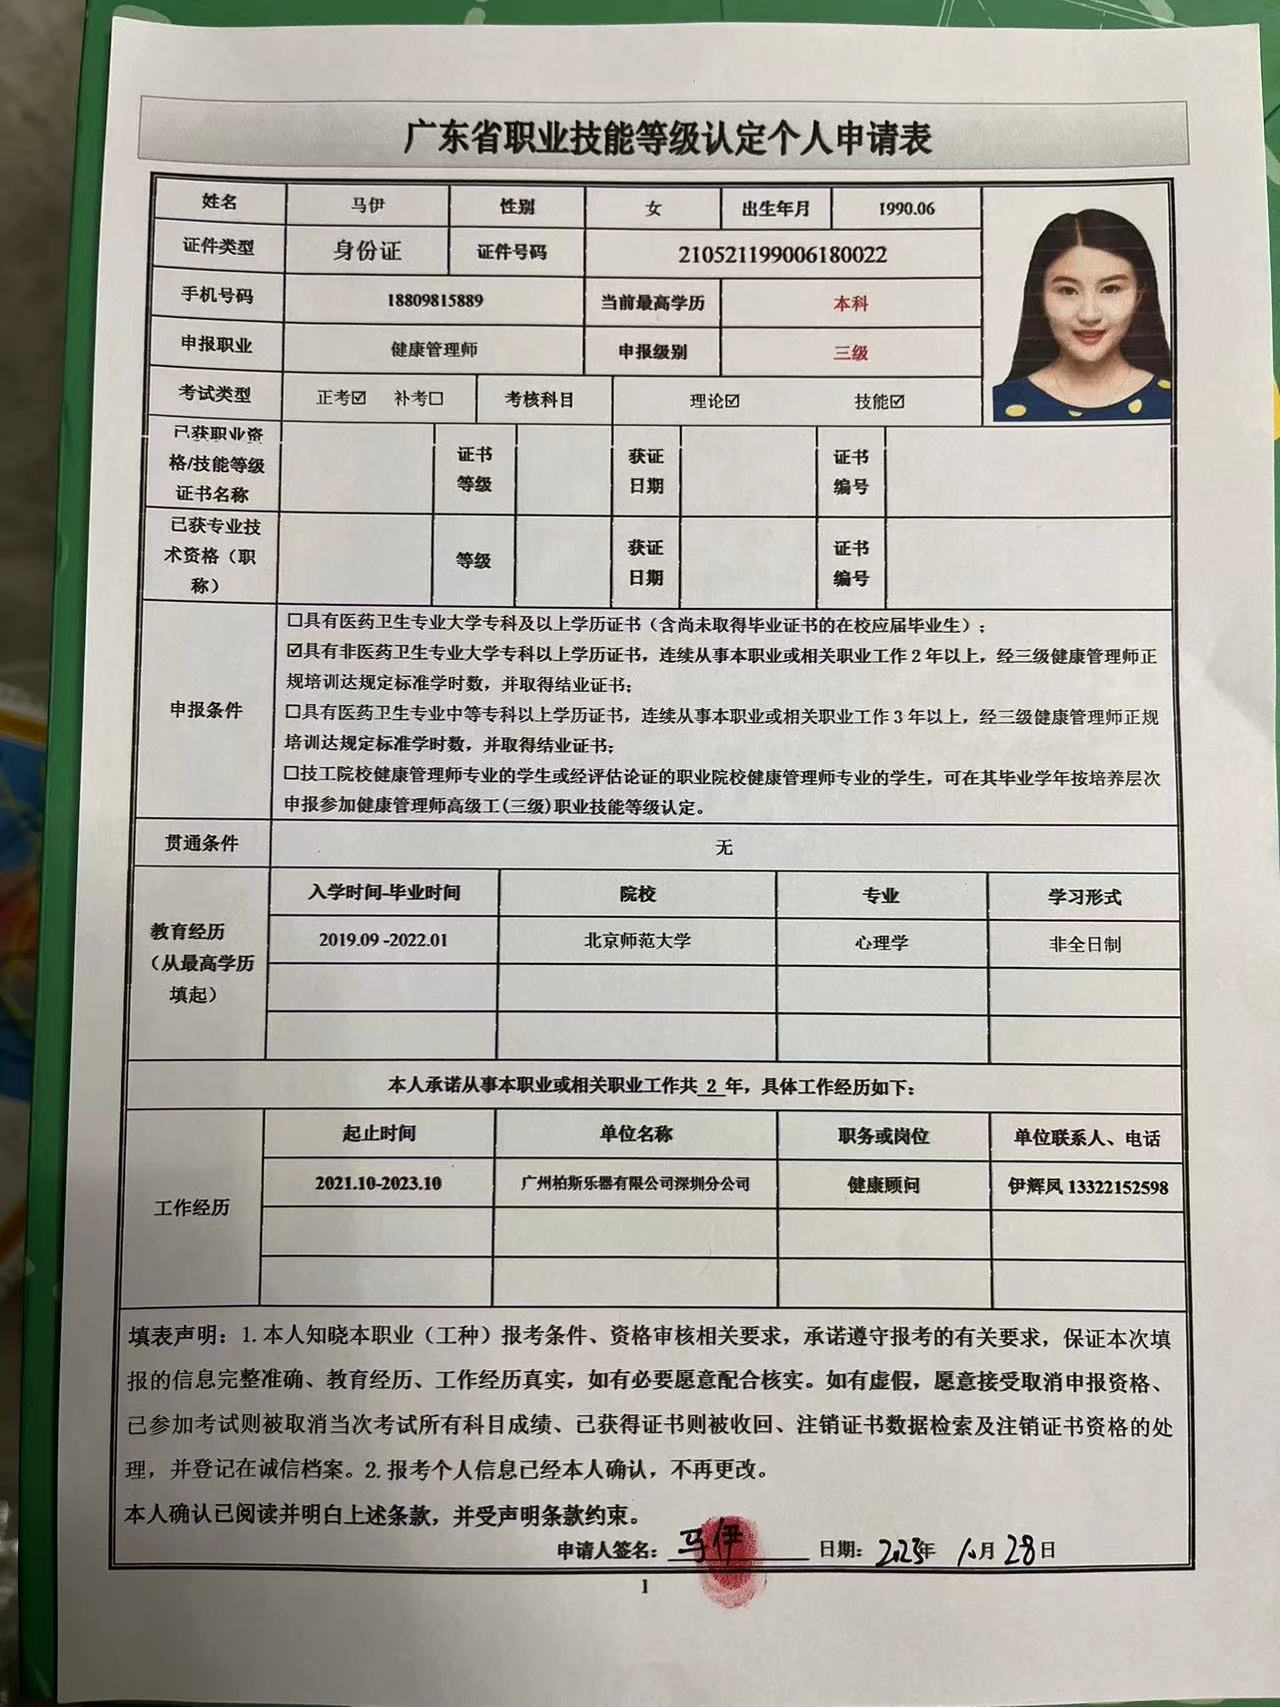 广东省职业技能等级认定个人申请表
姓名 马伊 性别 女 出生年月 1990.06
证件类型 身份证 证件号码 210521199006180022
手机号码 18809815889 当前最高学历 本科
申报职业 健康管理师 申报级别 三级
考试类型 正考☑ 补考☐ 考核科目 理论☑ 技能☑
已获职业资
格/技能等级
证书名称
证书
等级
获证
日期
证书
编号
已获专业技
术资格（职
称）
等级
获证
日期
证书
编号
申报条件
☐具有医药卫生专业大学专科及以上学历证书（含尚未取得毕业证书的在校应届毕业生）；
☑具有非医药卫生专业大学专科以上学历证书，连续从事本职业或相关职业工作2年以上，经三级健康管理师正
规培训达规定标准学时数，并取得结业证书；
☐具有医药卫生专业中等专科以上学历证书，连续从事本职业或相关职业工作3年以上，经三级健康管理师正规
培训达规定标准学时数，并取得结业证书；
☐技工院校健康管理师专业的学生或经评估论证的职业院校健康管理师专业的学生，可在其毕业学年按培养层次
申报参加健康管理师高级工(三级)职业技能等级认定。
贯通条件 无
教育经历
（从最高学历
填起）
入学时间-毕业时间 院校 专业 学习形式
2019.09 -2022.01 北京师范大学 心理学 非全日制
本人承诺从事本职业或相关职业工作共 2 年，具体工作经历如下：
工作经历
起止时间 单位名称 职务或岗位 单位联系人、电话
2021.10-2023.10 广州柏斯乐器有限公司深圳分公司 健康顾问 伊辉凤 13322152598
填表声明：1.本人知晓本职业（工种）报考条件、资格审核相关要求，承诺遵守报考的有关要求，保证本次填
报的信息完整准确、教育经历、工作经历真实，如有必要愿意配合核实。如有虚假，愿意接受取消申报资格、
已参加考试则被取消当次考试所有科目成绩、已获得证书则被收回、注销证书数据检索及注销证书资格的处
理，并登记在诚信档案。2.报考个人信息已经本人确认，不再更改。
本人确认已阅读并明白上述条款，并受声明条款约束。
申请人签名：马伊 日期：2023年 10月 28日
1